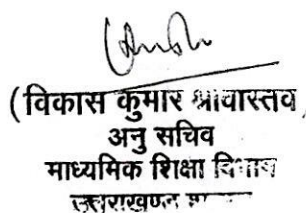 (विकास कुमार श्रीवास्तव)
अनु सचिव
माध्यमिक शिक्षा विभाग
उत्तराखण्ड